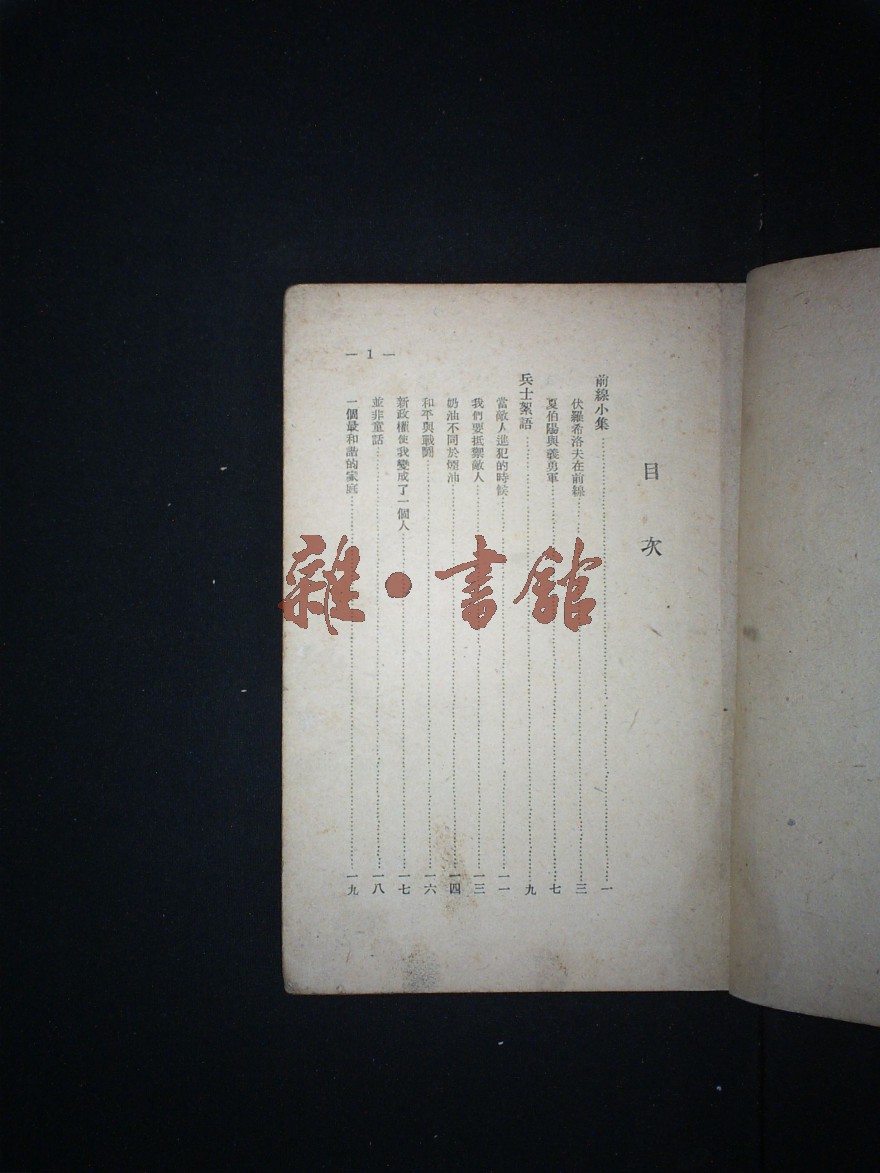 目次
前線小集……一
伏羅希洛夫在前線……三
夏伯陽與義勇軍……七
兵士絮語……九
當敵人進犯的時候……一一
我們要抵禦敵人……一三
奶油不同於煙油……一四
和平與戰鬭……一六
新政權使我變成了一個人……一七
並非童話……一八
一個最和諧的家庭……一九
— 1 —
雜·書館